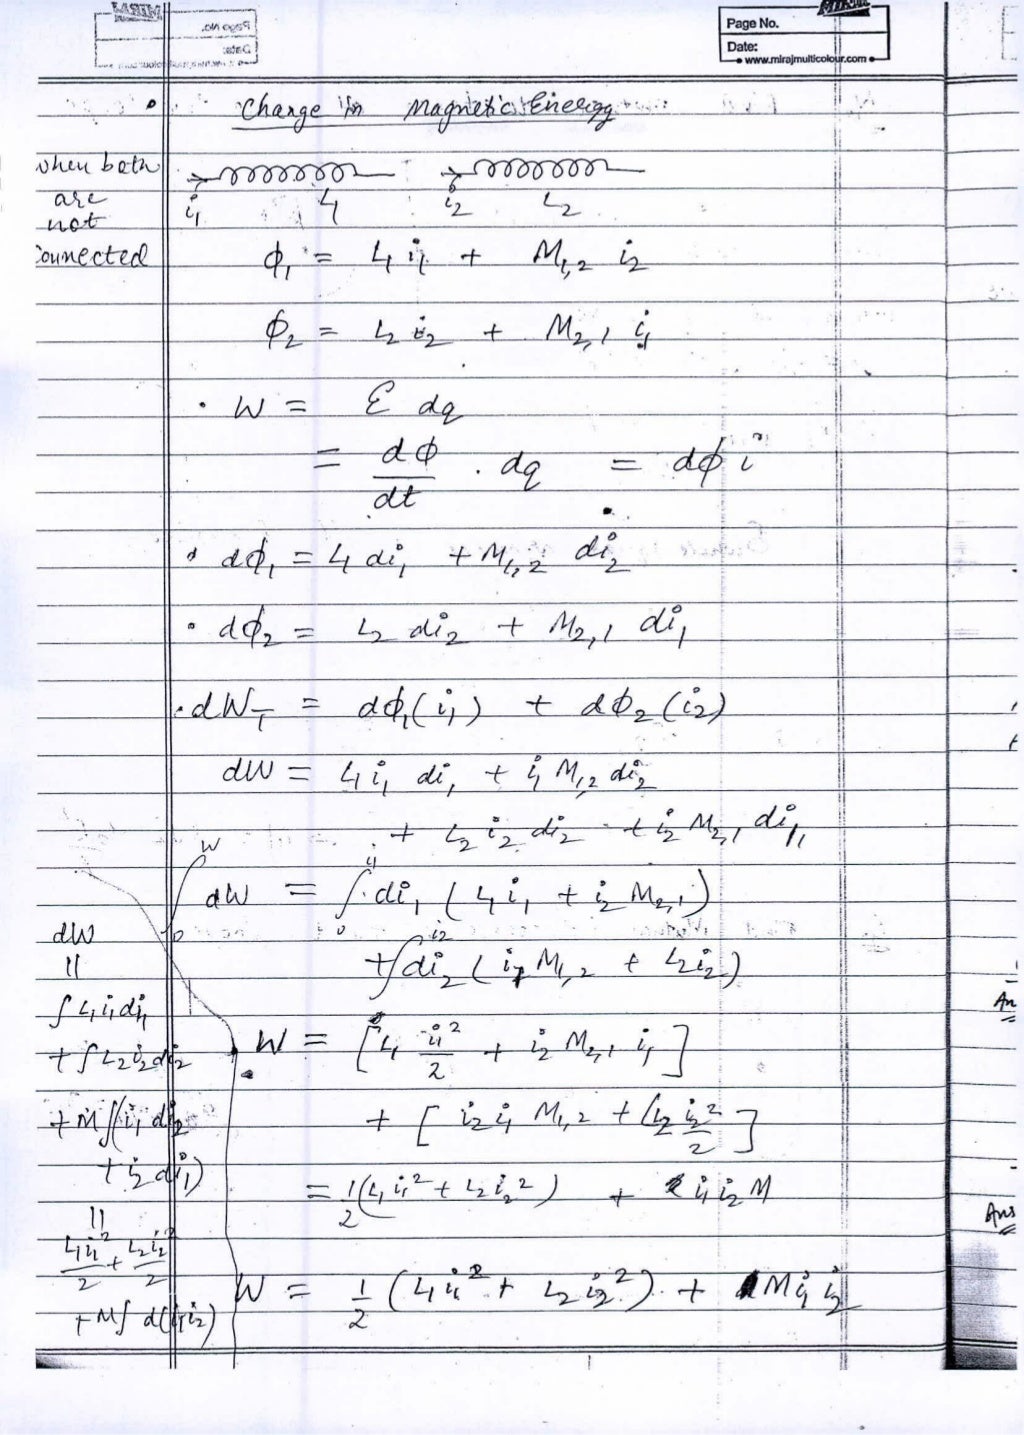 Page No.
Date:
www.mirajmulticolour.com
Change in Magnetic Energy
when both are not connected
i₁ L₁ i₂ L₂
ϕ₁ = L₁ i₁ + M₁,₂ i₂
ϕ₂ = L₂ i₂ + M₂,₁ i₁
• W = Ɛ dq
= dϕ/dt . dq = dϕ i
• dϕ₁ = L₁ di₁ + M₁,₂ di₂
• dϕ₂ = L₂ di₂ + M₂,₁ di₁
• dW_T = dϕ₁(i₁) + dϕ₂(i₂)
dW = L₁ i₁ di₁ + i₁ M₁,₂ di₂
+ L₂ i₂ di₂ + i₂ M₂,₁ di₁
∫₀^W dW = ∫₀^i₁ di₁ (L₁ i₁ + i₂ M₂,₁)
+ ∫^i₂ di₂ (i₁ M₁,₂ + L₂ i₂)
W = [L₁ i₁²/2 + i₂ M₂,₁ i₁]
+ [i₂ i₁ M₁,₂ + (L₂ i₂²/2]
= 1/2 (L₁ i₁² + L₂ i₂²) + i₁ i₂ M
W = 1/2 (L₁ i₁² + L₂ i₂²) + M i₁ i₂
dW
||
∫ L₁ i₁ di₁
+ ∫ L₂ i₂ di₂
+ M ∫(i₁ di₂
+ i₂ di₁)
||
L₁ i₁²/2 + L₂ i₂²/2
+ M ∫ d(i₁ i₂)
An
Ans